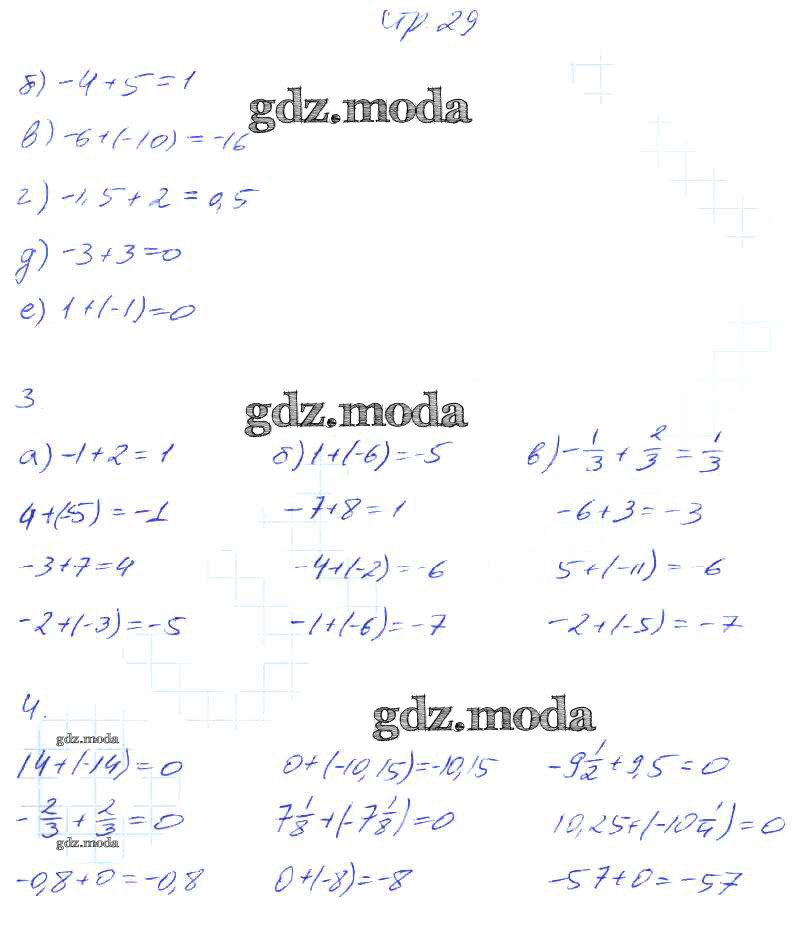 стр. 29
б) -4+5=1
gdz.moda
в) -6+(-10)=-16
г) -1,5+2=0,5
д) -3+3=0
е) 1+(-1)=0
3.
gdz.moda
а) -1+2=1 б) 1+(-6)=-5 в) -1/3+2/3=1/3
4+(-5)=-1 -7+8=1 -6+3=-3
-3+7=4 -4+(-2)=-6 5+(-11)=-6
-2+(-3)=-5 -1+(-6)=-7 -2+(-5)=-7
4.
gdz.moda
gdz.moda
14+(-14)=0 0+(-10,15)=-10,15 -9 1/2+9,5=0
-2/3+2/3=0 7 1/8+(-7 1/8)=0 10,25+(-10 1/4)=0
gdz.moda
-0,8+0=-0,8 0+(-8)=-8 -57+0=-57